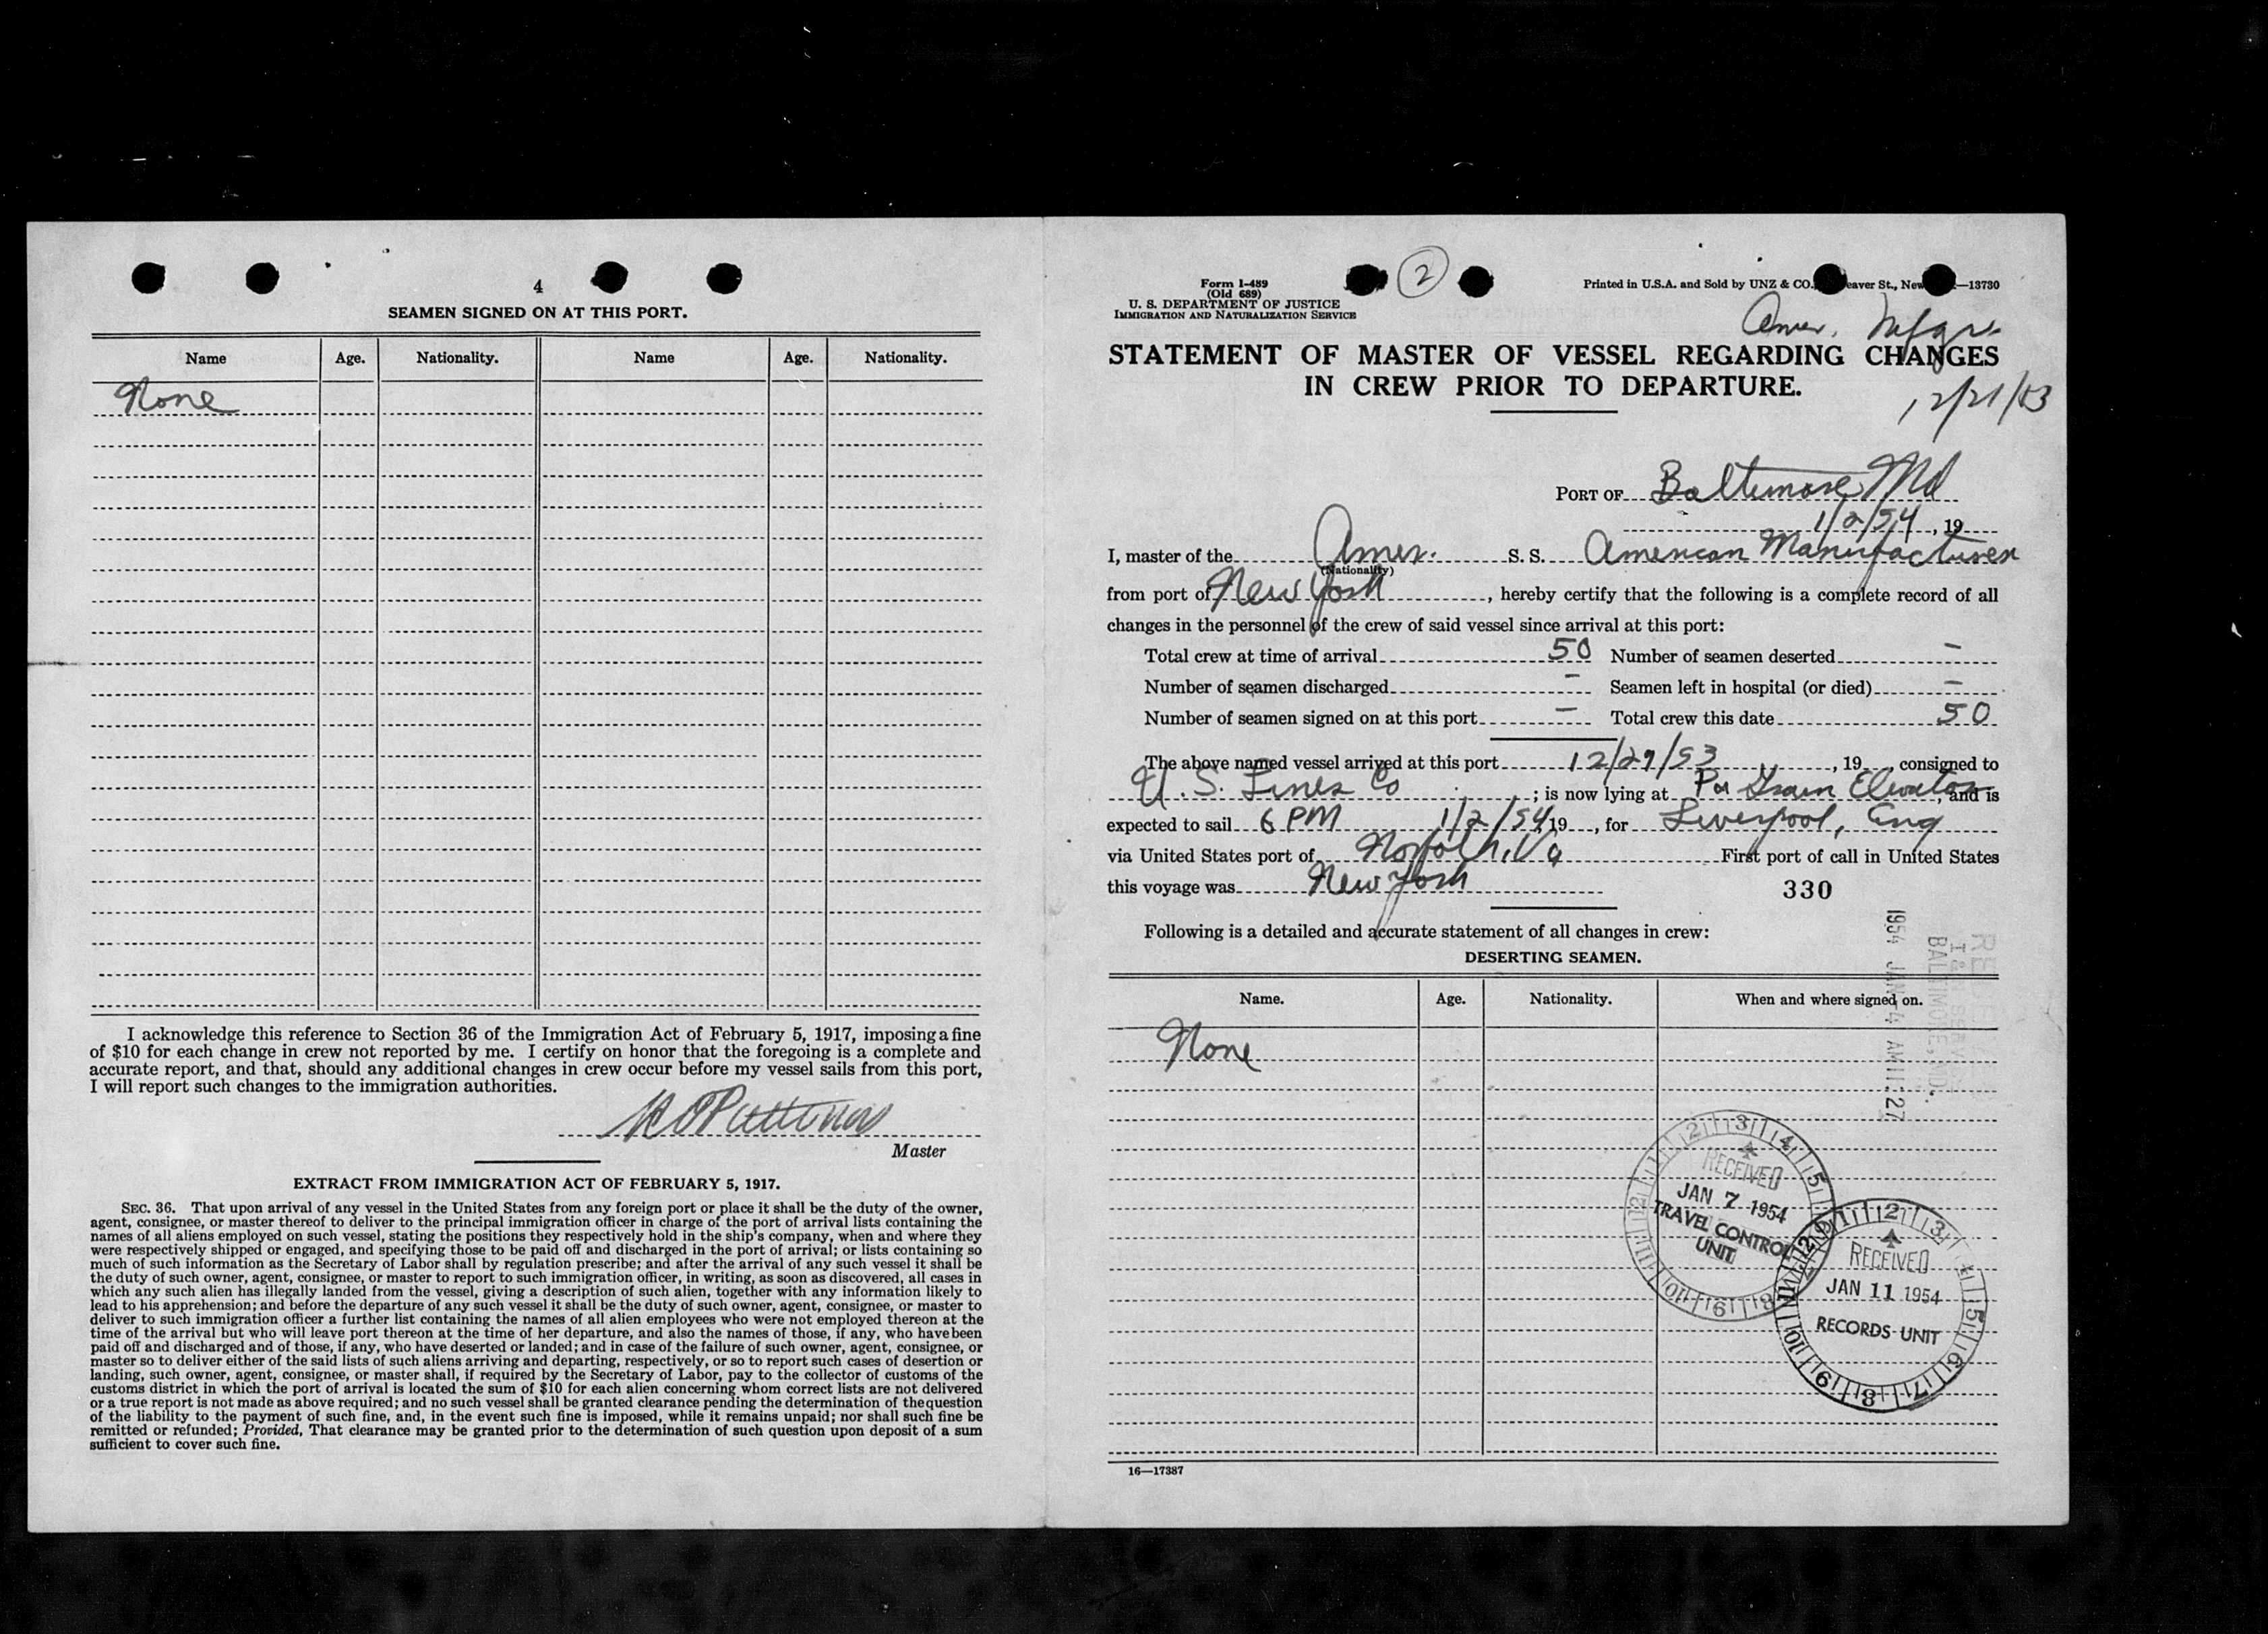 4
SEAMEN SIGNED ON AT THIS PORT.
Name Age. Nationality. Name Age. Nationality.
None
I acknowledge this reference to Section 36 of the Immigration Act of February 5, 1917, imposing a fine
of $10 for each change in crew not reported by me. I certify on honor that the foregoing is a complete and
accurate report, and that, should any additional changes in crew occur before my vessel sails from this port,
I will report such changes to the immigration authorities.
Master
EXTRACT FROM IMMIGRATION ACT OF FEBRUARY 5, 1917.
SEC. 36. That upon arrival of any vessel in the United States from any foreign port or place it shall be the duty of the owner,
agent, consignee, or master thereof to deliver to the principal immigration officer in charge of the port of arrival lists containing the
names of all aliens employed on such vessel, stating the positions they respectively hold in the ship's company, when and where they
were respectively shipped or engaged, and specifying those to be paid off and discharged in the port of arrival; or lists containing so
much of such information as the Secretary of Labor shall by regulation prescribe; and after the arrival of any such vessel it shall be
the duty of such owner, agent, consignee, or master to report to such immigration officer, in writing, as soon as discovered, all cases in
which any such alien has illegally landed from the vessel, giving a description of such alien, together with any information likely to
lead to his apprehension; and before the departure of any such vessel it shall be the duty of such owner, agent, consignee, or master to
deliver to such immigration officer a further list containing the names of all alien employees who were not employed thereon at the
time of the arrival but who will leave port thereon at the time of her departure, and also the names of those, if any, who have been
paid off and discharged and of those, if any, who have deserted or landed; and in case of the failure of such owner, agent, consignee, or
master so to deliver either of the said lists of such aliens arriving and departing, respectively, or so to report such cases of desertion or
landing, such owner, agent, consignee, or master shall, if required by the Secretary of Labor, pay to the collector of customs of the
customs district in which the port of arrival is located the sum of $10 for each alien concerning whom correct lists are not delivered
or a true report is not made as above required; and no such vessel shall be granted clearance pending the determination of the question
of the liability to the payment of such fine, and, in the event such fine is imposed, while it remains unpaid; nor shall such fine be
remitted or refunded; Provided, That clearance may be granted prior to the determination of such question upon deposit of a sum
sufficient to cover such fine.
Form I-489
(Old 689)
U. S. DEPARTMENT OF JUSTICE
IMMIGRATION AND NATURALIZATION SERVICE
2
Printed in U.S.A. and Sold by UNZ & CO. eaver St., New —13730
Amer. Mfgr.
STATEMENT OF MASTER OF VESSEL REGARDING CHANGES
IN CREW PRIOR TO DEPARTURE.
12/21/53
PORT OF Baltimore Md
1/2/54, 19
I, master of the Amer. S. S. American Manufacturer
(Nationality)
from port of New York, hereby certify that the following is a complete record of all
changes in the personnel of the crew of said vessel since arrival at this port:
Total crew at time of arrival 50 Number of seamen deserted –
Number of seamen discharged – Seamen left in hospital (or died) –
Number of seamen signed on at this port – Total crew this date 50
The above named vessel arrived at this port 12/29/53, 19 , consigned to
U.S. Lines Co ; is now lying at Pa Grain Elevator, and is
expected to sail 6 PM 1/2/54 19 , for Liverpool, Eng
via United States port of Norfolk, Va First port of call in United States
this voyage was New York
330
Following is a detailed and accurate statement of all changes in crew:
DESERTING SEAMEN.
Name. Age. Nationality. When and where signed on.
None
1954 JAN -4 AM 11:27
BALTIMORE, MD.
RECEIVED
JAN 7 1954
TRAVEL CONTROL
UNIT
RECEIVED
JAN 11 1954
RECORDS UNIT
16—17387